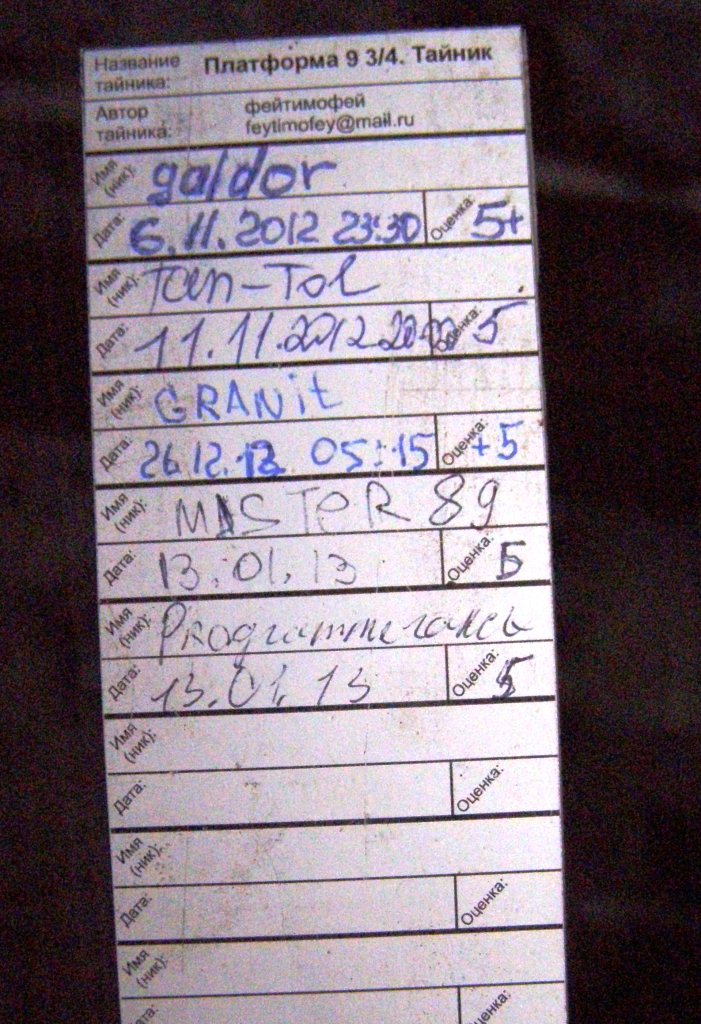 Название тайника: Платформа 9 3/4. Тайник
Автор тайника: фейтимофей
feytimofey@mail.ru
Имя (ник): galdor
Дата: 6.11.2012 23:30 Оценка: 5+
Имя (ник): tan-Tol
Дата: 11.11.2012 Оценка: 5
Имя (ник): GRANit
Дата: 26.12.12 05:15 Оценка: +5
Имя (ник): MISTeR 89
Дата: 13.01.13 Оценка: 5
Имя (ник):
Дата: 13.01.13 Оценка: 5
Имя (ник):
Дата: Оценка:
Имя (ник):
Дата: Оценка:
Имя (ник):
Дата: Оценка: